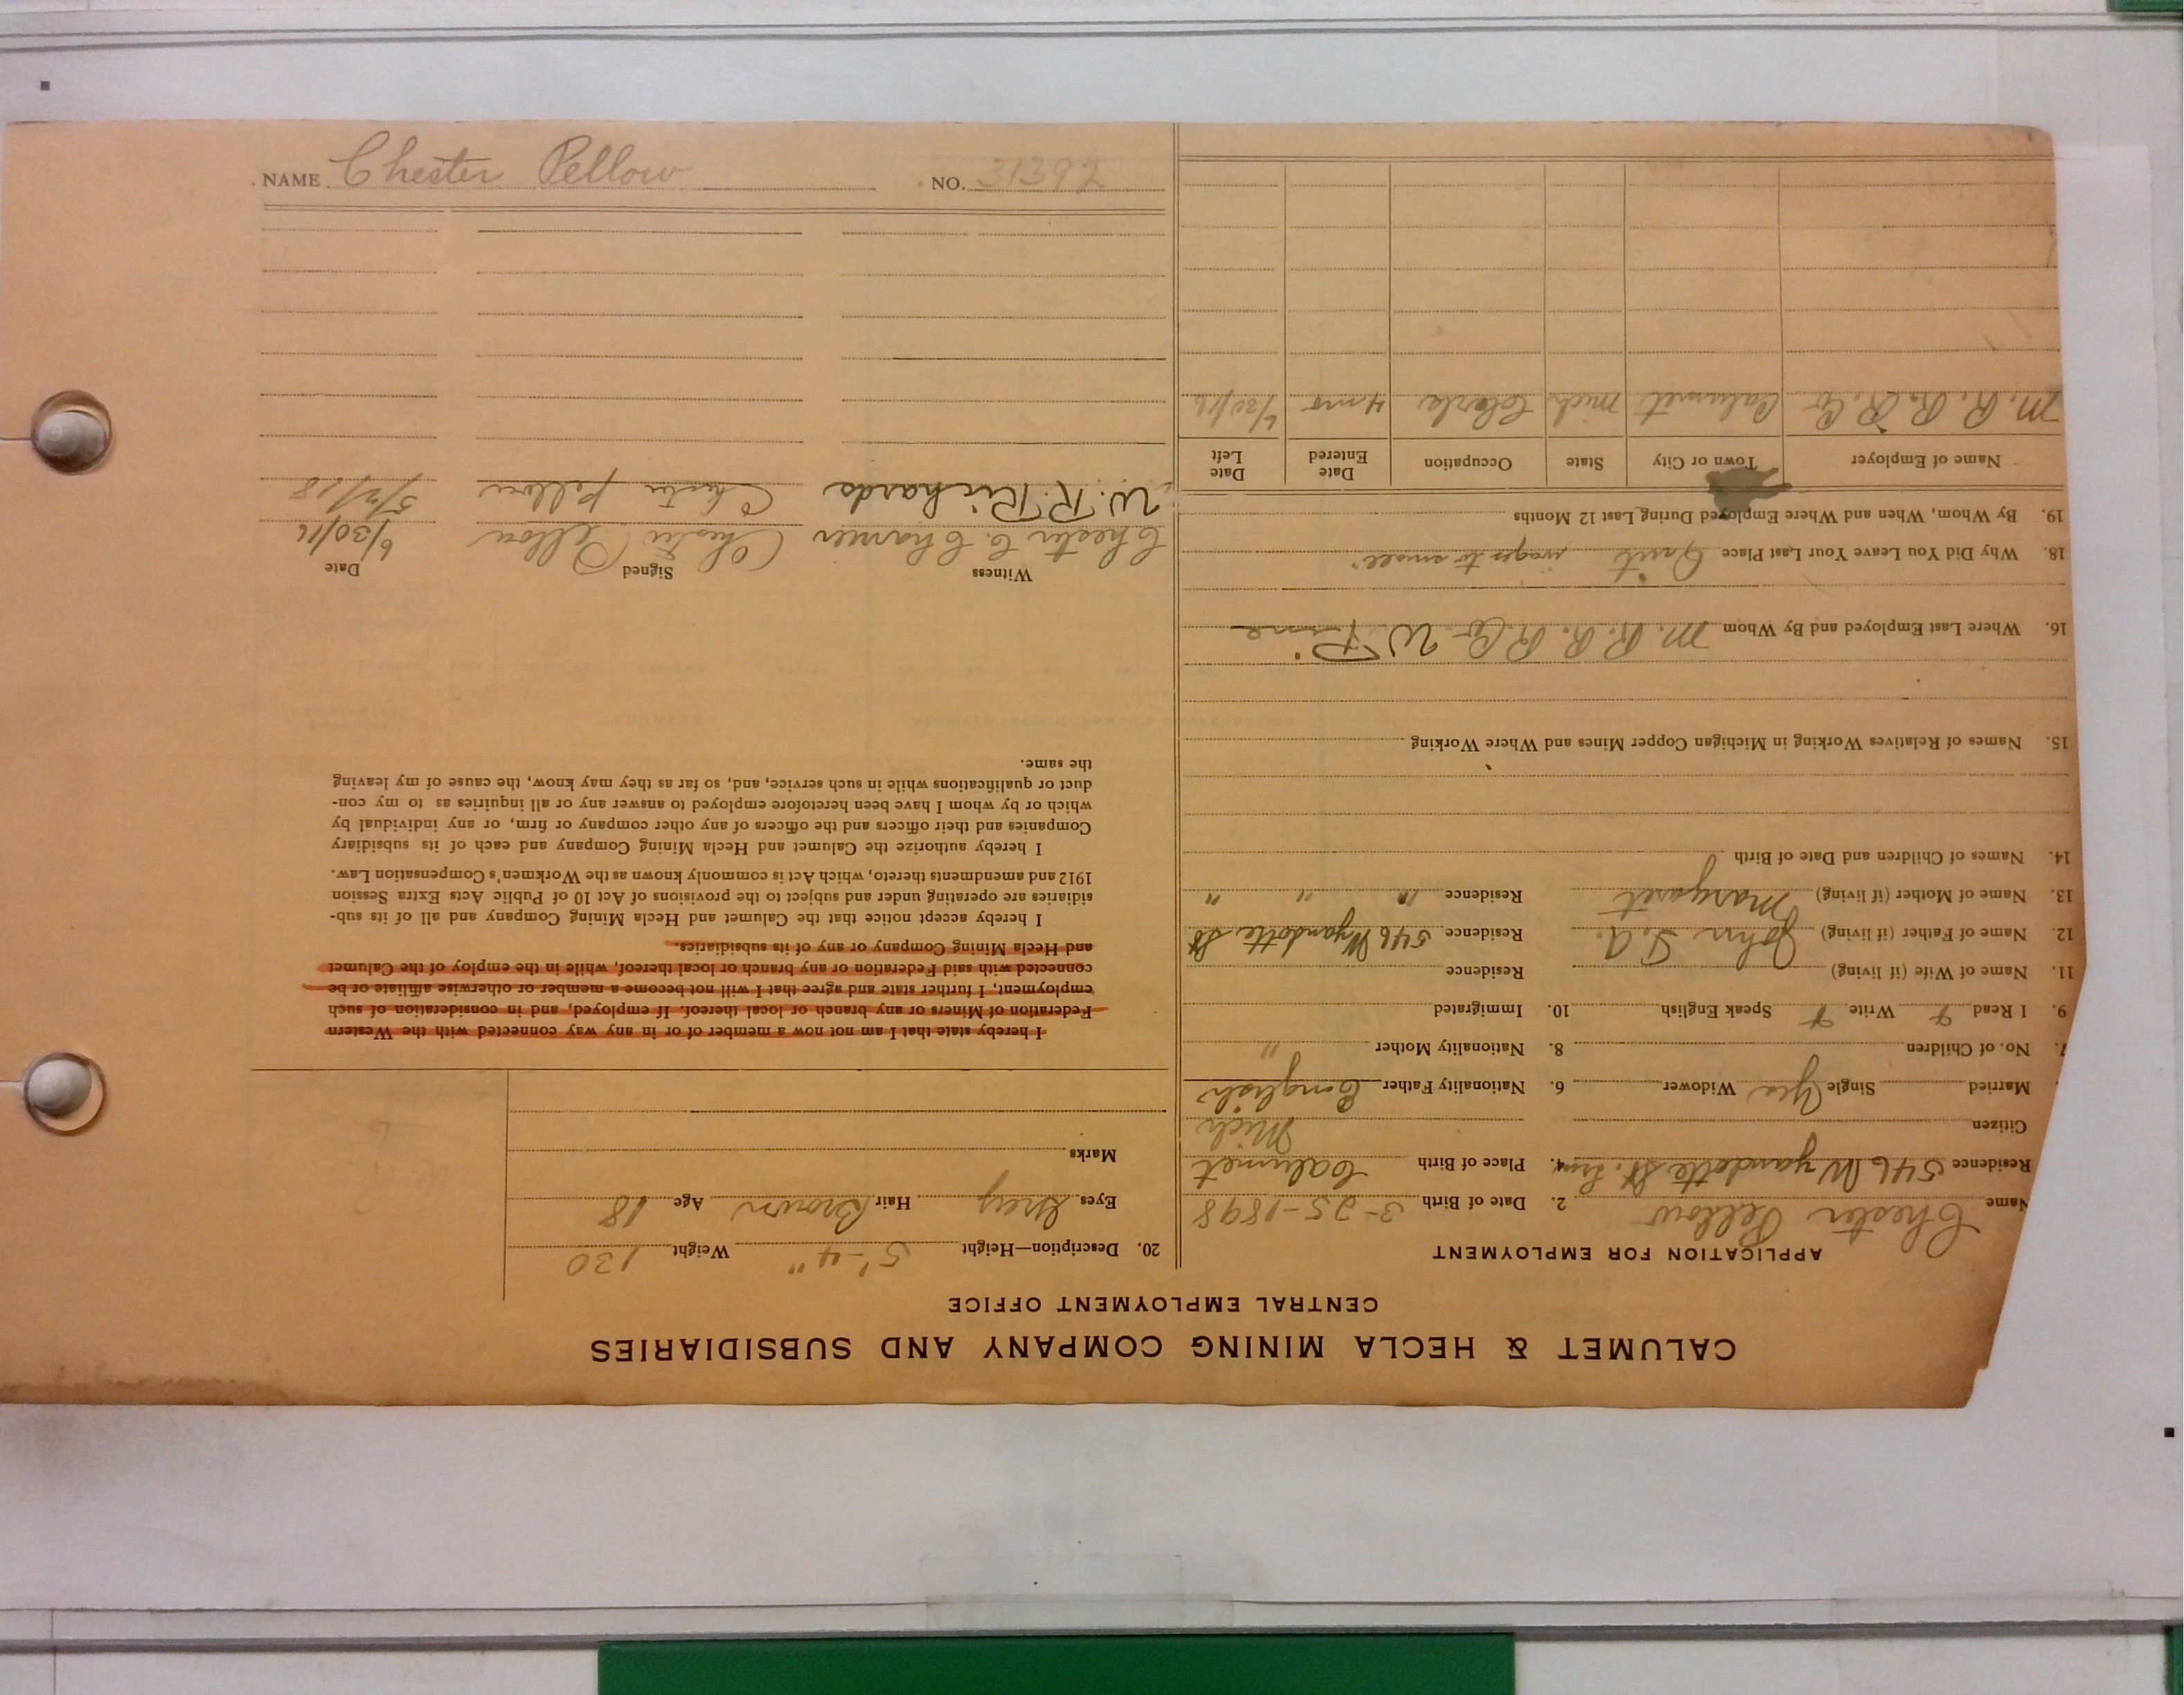 CALUMET & HECLA MINING COMPANY AND SUBSIDIARIES
CENTRAL EMPLOYMENT OFFICE
APPLICATION FOR EMPLOYMENT
Name Chester Pellow 2. Date of Birth 3-25-1898
Residence 546 Wyandotte St. 4. Place of Birth Calumet
Citizen Mich
Married Single Yes Widower 6. Nationality Father English
7. No. of Children 8. Nationality Mother "
9. I Read Write Speak English 10. Immigrated
11. Name of Wife (if living) Residence
12. Name of Father (if living) John Residence 546 Wyandotte St
13. Name of Mother (if living) Margaret Residence " " "
14. Names of Children and Date of Birth
15. Names of Relatives Working in Michigan Copper Mines and Where Working
16. Where Last Employed and By Whom M. R. R. R. Co W.
18. Why Did You Leave Your Last Place Quit wages to small
19. By Whom, When and Where Employed During Last 12 Months
Name of Employer Town or City State Occupation Date Entered Date Left
M. R. R. R. Co Calumet Mich Clerk 4 mo 6/30/16
20. Description—Height 5'-4" Weight 130
Eyes Grey Hair Brown Age 18
Marks
I hereby state that I am not now a member of or in any way connected with the Western
Federation of Miners or any branch or local thereof. If employed, and in consideration of such
employment, I further state and agree that I will not become a member or otherwise affiliate or be
connected with said Federation or any branch or local thereof, while in the employ of the Calumet
and Hecla Mining Company or any of its subsidiaries.
I hereby accept notice that the Calumet and Hecla Mining Company and all of its sub-
sidiaries are operating under and subject to the provisions of Act 10 of Public Acts Extra Session
1912 and amendments thereto, which Act is commonly known as the Workmen's Compensation Law.
I hereby authorize the Calumet and Hecla Mining Company and each of its subsidiary
Companies and their officers and the officers of any other company or firm, or any individual by
which or by whom I have been heretofore employed to answer any or all inquiries as to my con-
duct or qualifications while in such service, and, so far as they may know, the cause of my leaving
the same.
Witness Signed Date
Chester C. Chester Pellow 6/30/16
W. R. Richards Chester Pellow
NAME Chester Pellow NO. 31392